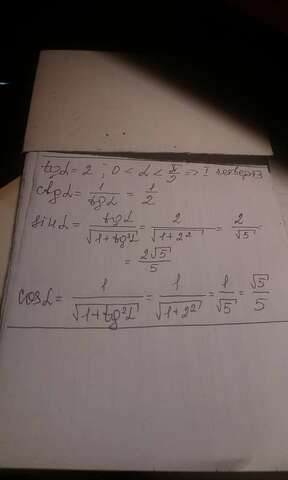 tgα = 2 ; 0 < α < π/2 => I четверть
ctgα = 1/tgα = 1/2
sinα = tgα/√(1+tg²α) = 2/√(1+2²) = 2/√5
= 2√5/5
cosα = 1/√(1+tg²α) = 1/√(1+2²) = 1/√5 = √5/5